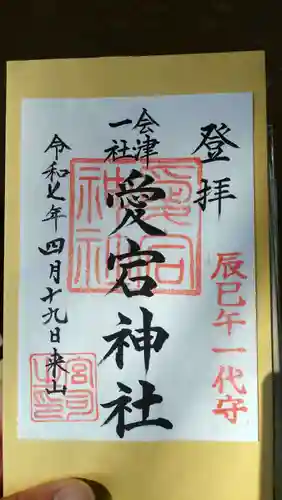 登拝
辰巳午一代守
会津
一社
愛宕神社
愛宕
神社
令和七年四月十九日来山